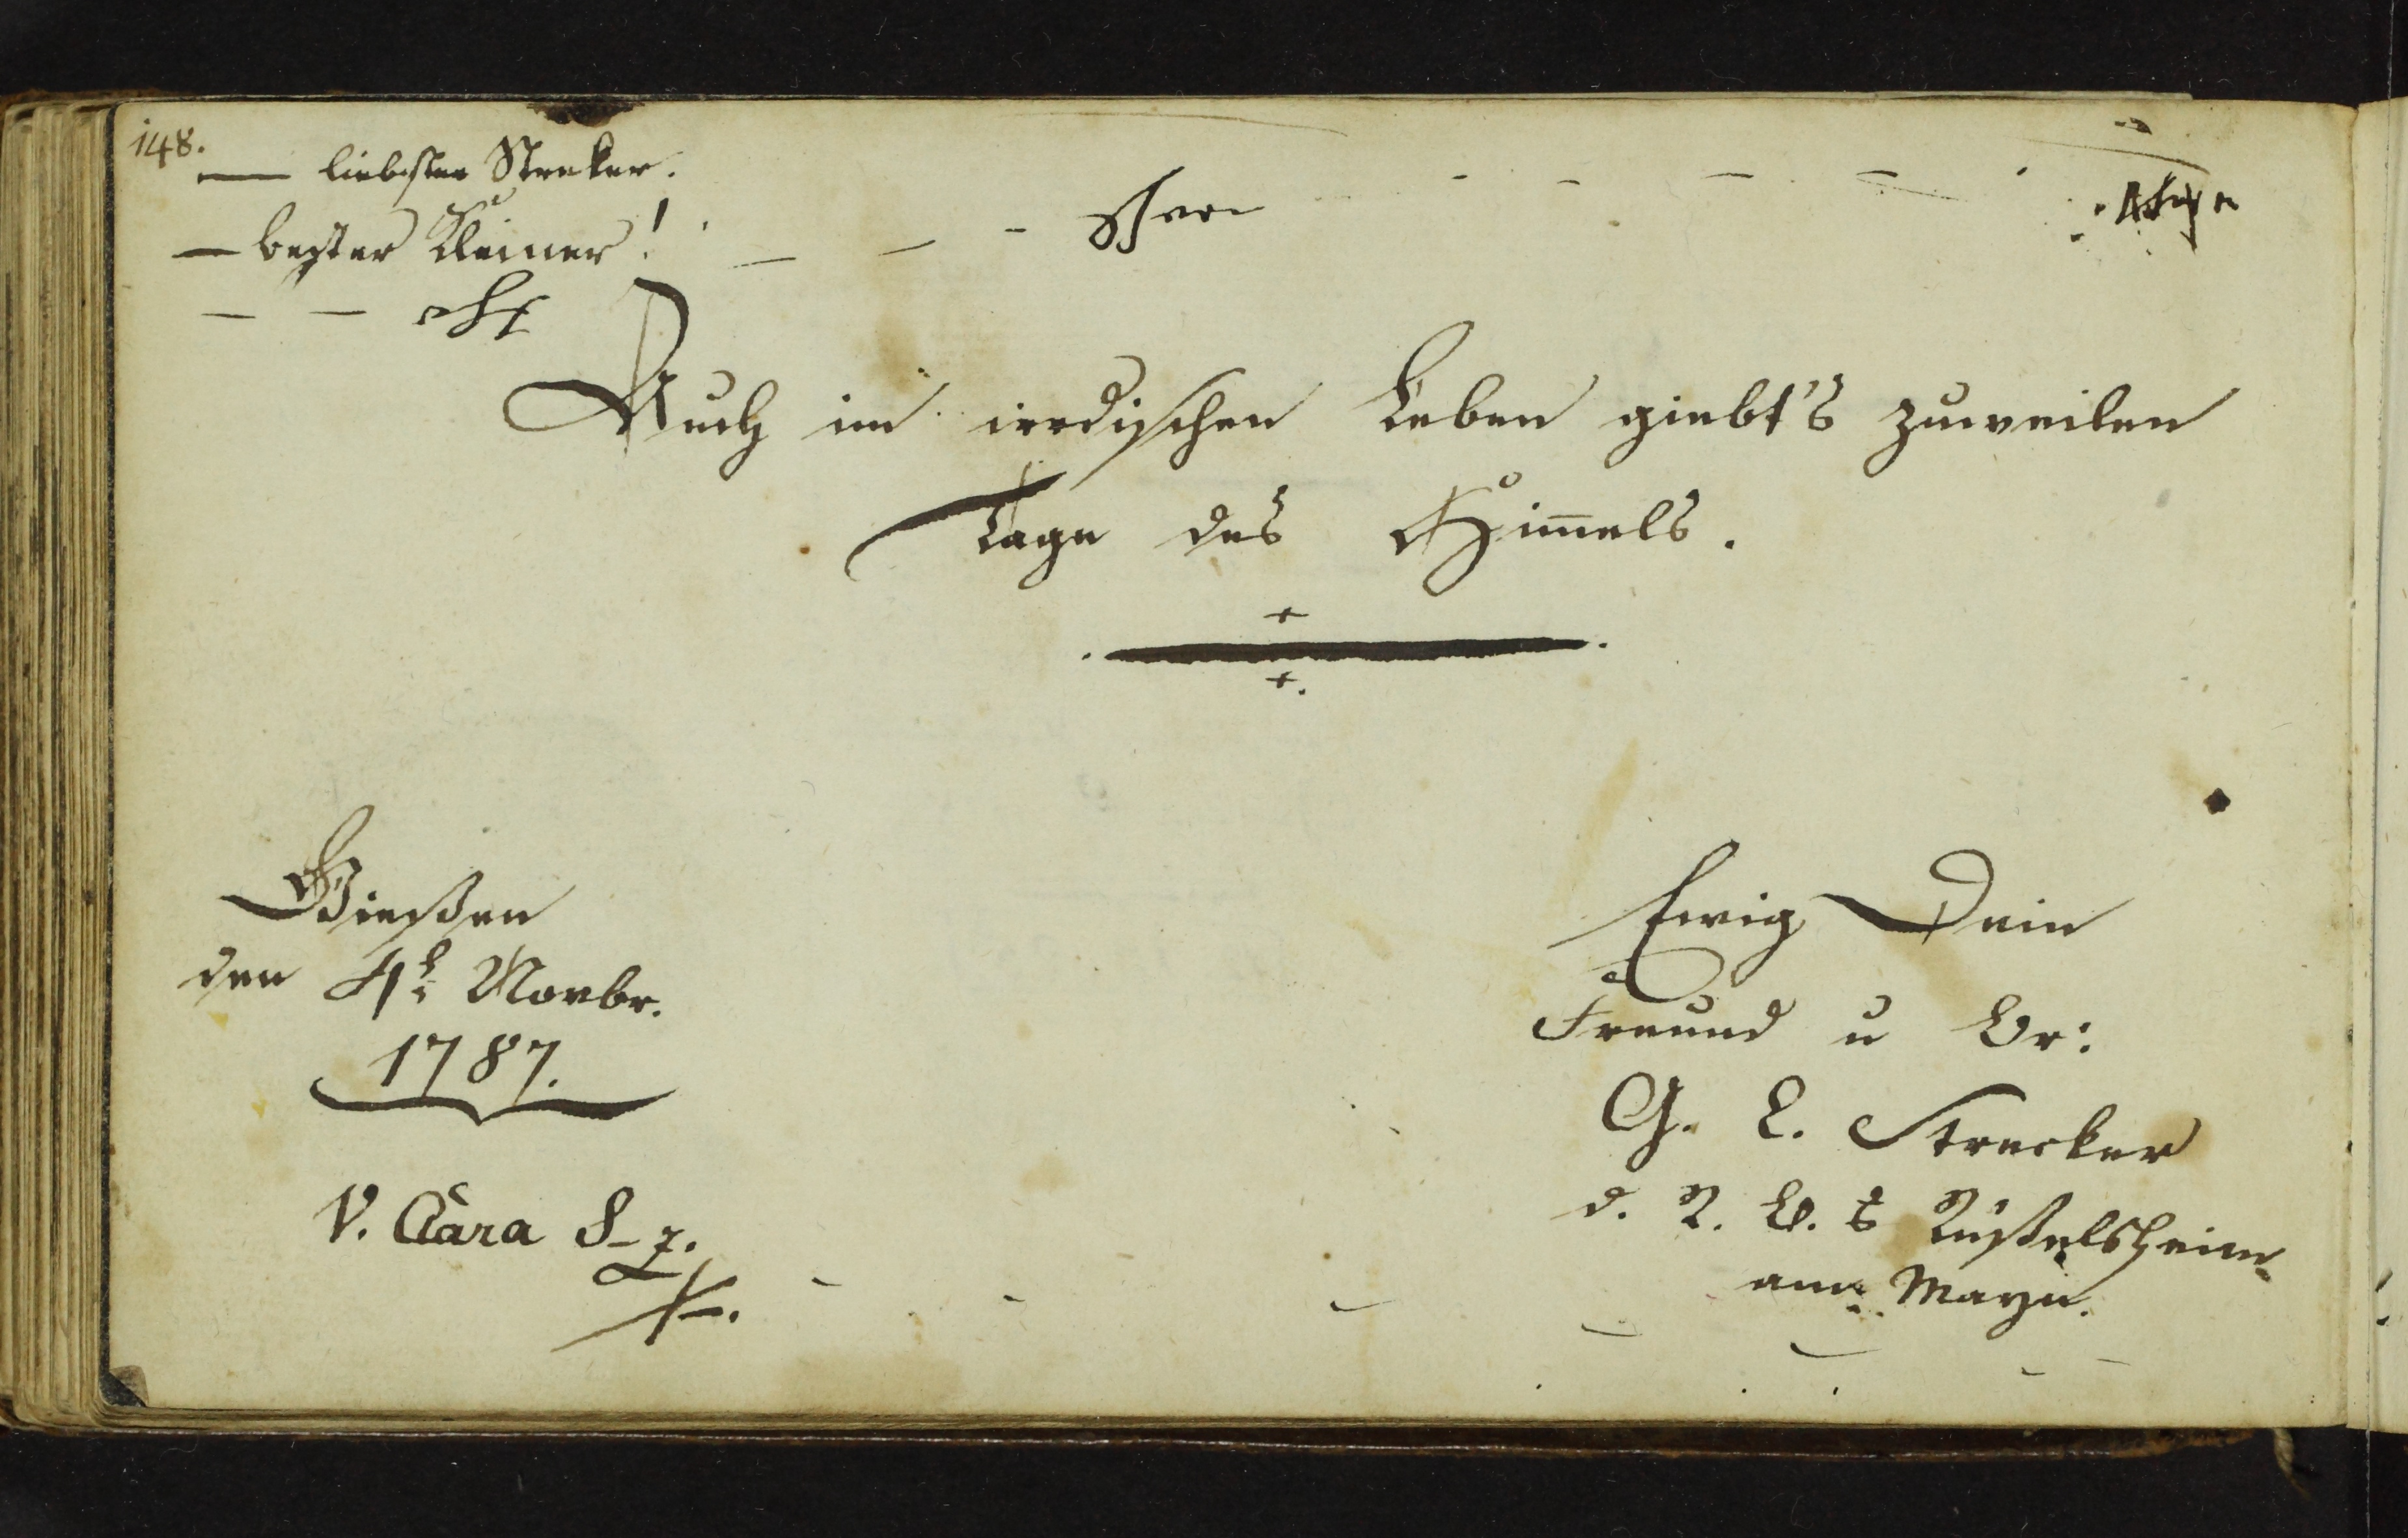 148.
— liebster Streker.
— bester Kleiner!
Auch im irrdischen Leben giebt's zuweilen
Tage des Him̄els.
Giessen
den 4t. Novbr.
1787.
V. Clara S-z.
Ewig Dein
Freund u Br:
G. L. Strecker
d. R. B. s Rüsselsheim
am Mayn.